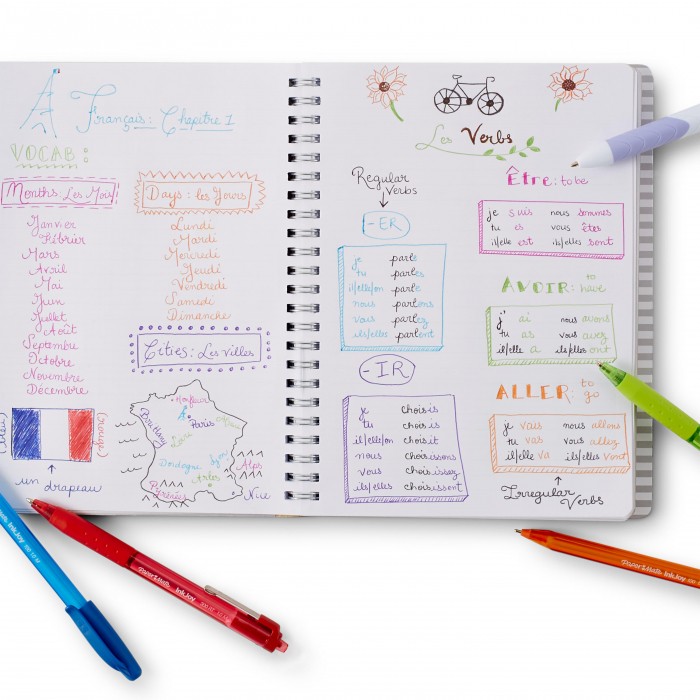 Français: Chapitre 1
VOCAB:
Months: Les Mois
Janvier
Février
Mars
Avril
Mai
Juin
Juillet
Août
Septembre
Octobre
Novembre
Décembre
Days: les Jours
Lundi
Mardi
Mercredi
Jeudi
Vendredi
Samedi
Dimanche
Cities: Les Villes
(bleu)
(rouge)
un drapeau
Honfleur
Paris
Brittany
Loire
Dordogne
Lyon
Alps
Arles
Pyrénées
Nice
Les Verbs
Regular
Verbs
-ER
je parle
tu parles
il/elle/on parle
nous parlons
vous parlez
ils/elles parlent
-IR
je choisis
tu choisis
il/elle/on choisit
nous choisissons
vous choisissez
ils/elles choisissent
Être: to be
je suis nous sommes
tu es vous êtes
il/elle est ils/elles sont
AVOIR: to have
j' ai nous avons
tu as vous avez
il/elle a ils/elles ont
ALLER: to go
je vais nous allons
tu vas vous allez
il/elle va ils/elles vont
Irregular
Verbs
InkJoy 100 1.0 M
PaperMate InkJoy 300 RT 1.0 M
PaperMate InkJoy 100